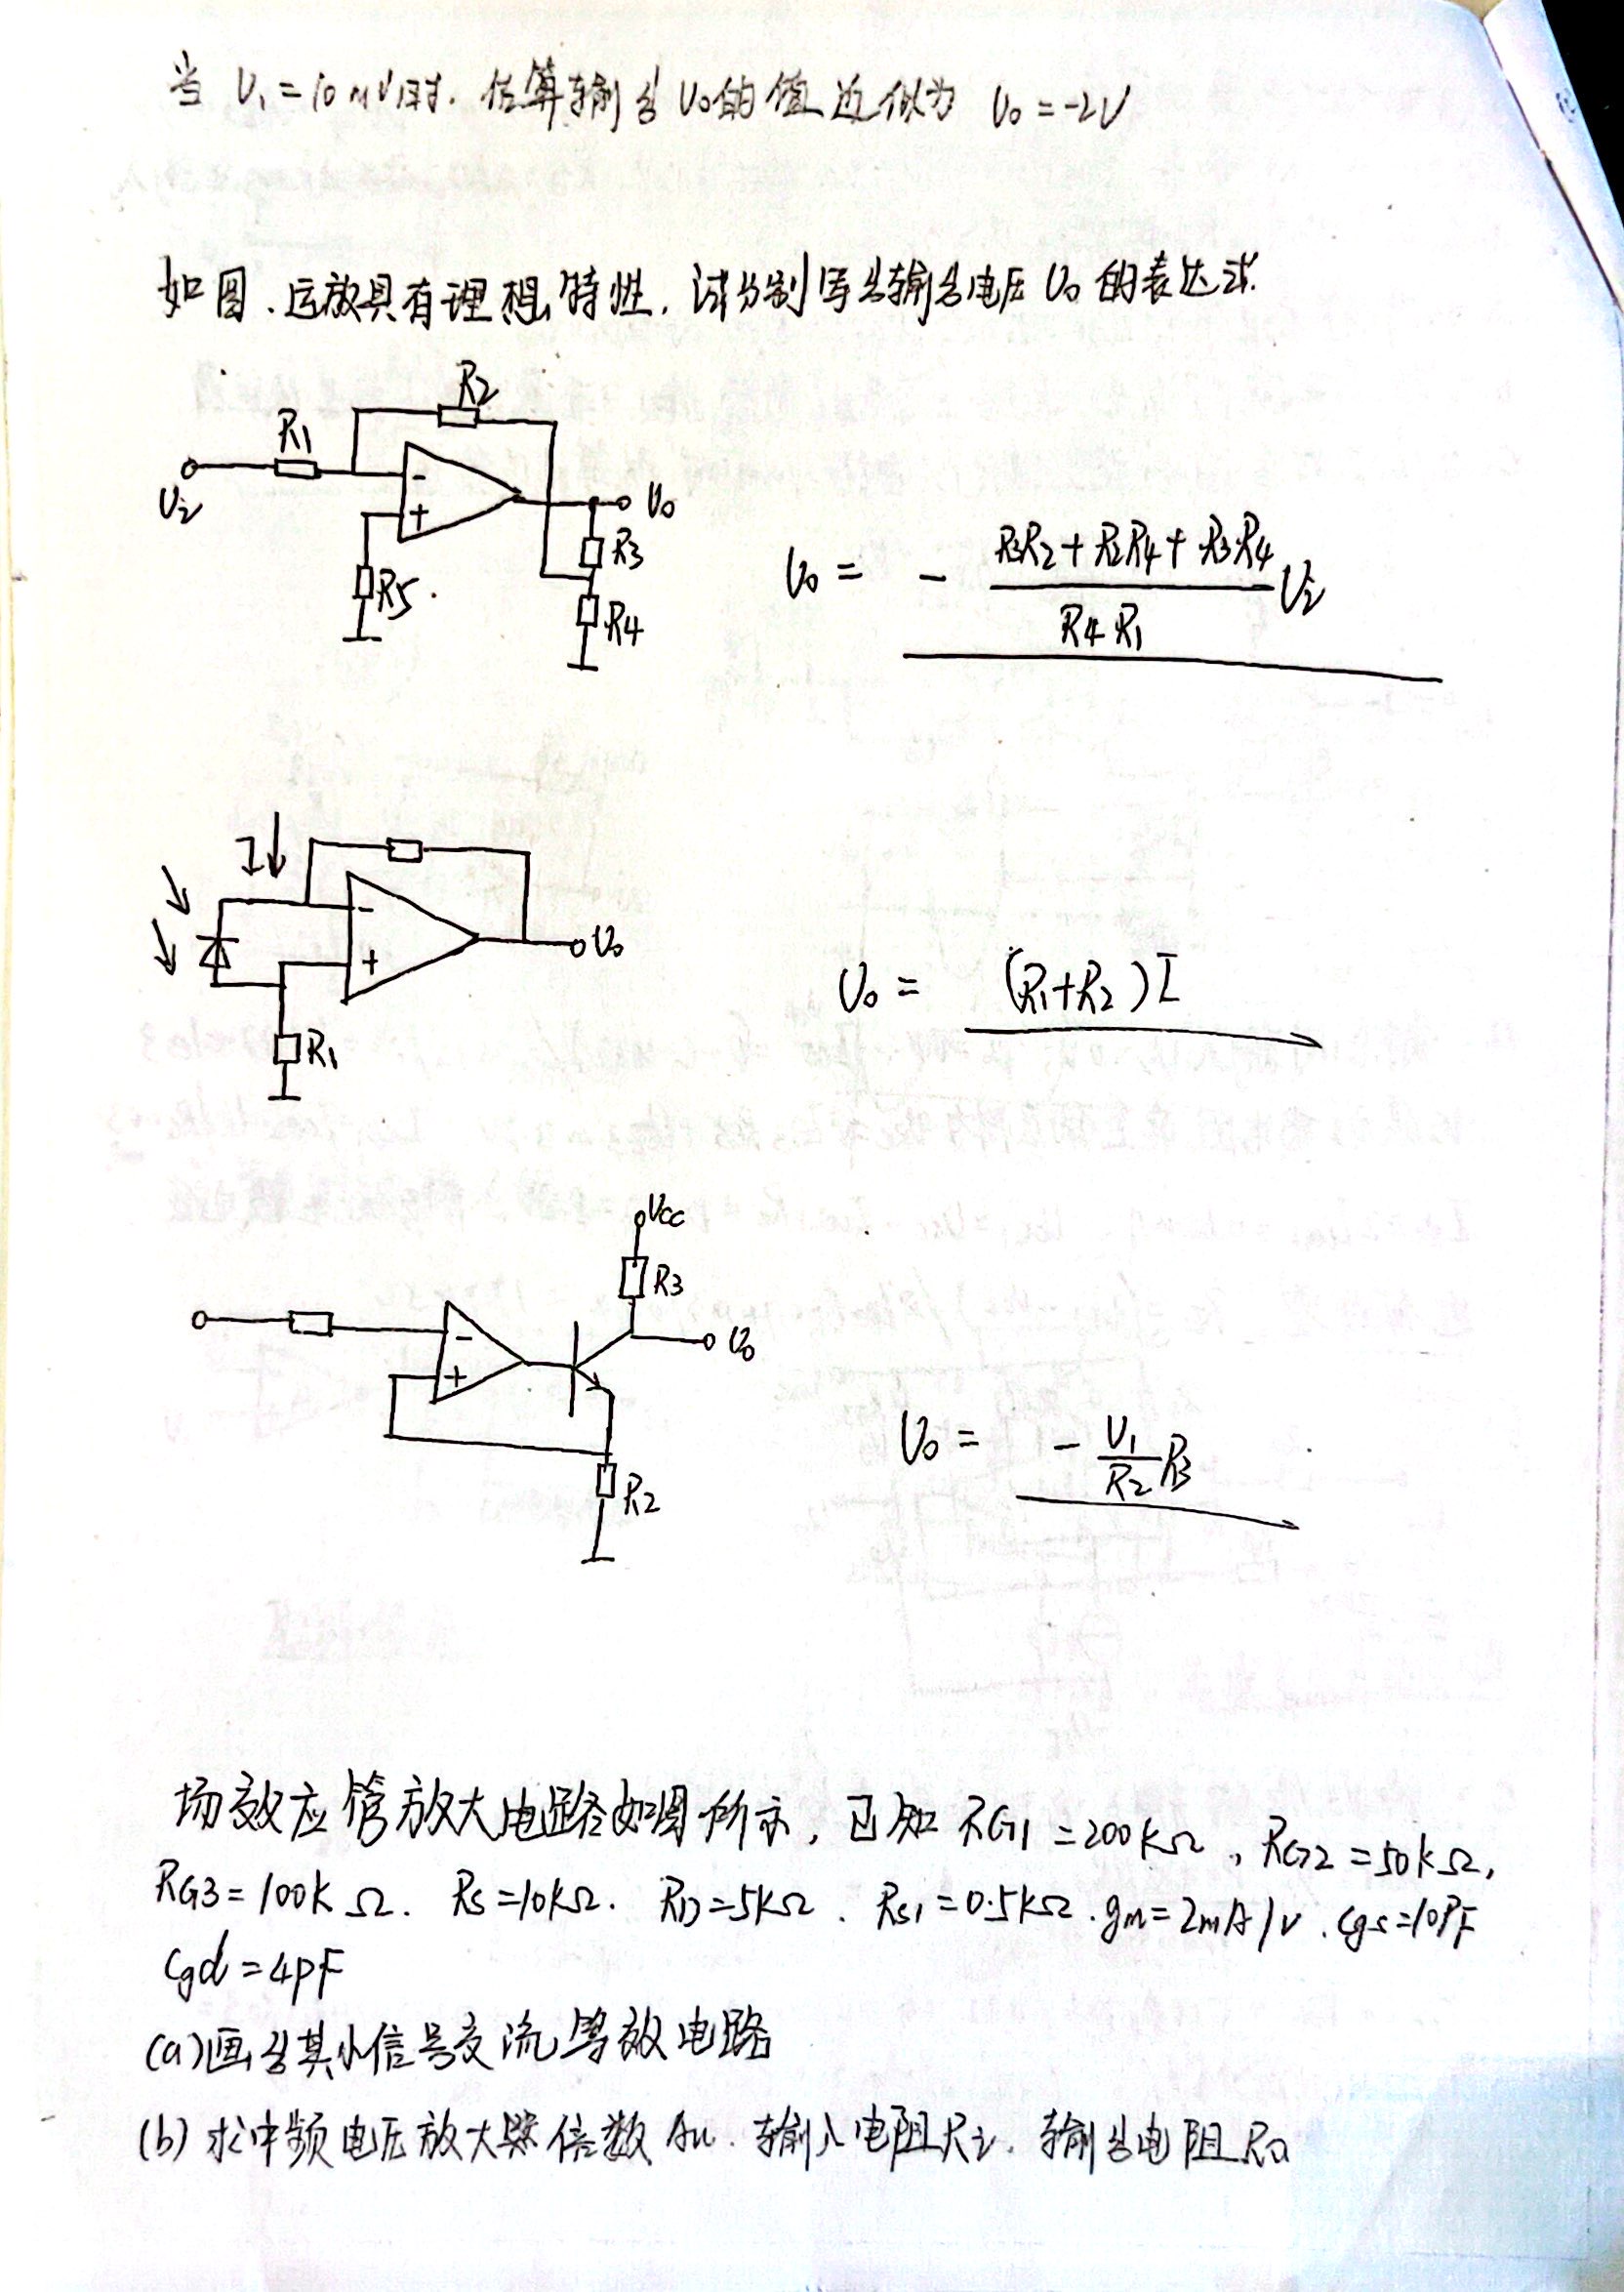 当 U1=10mV时.估算输出U0的值近似为 U0=-2V
如图.运放具有理想特性,试分别写出输出电压U0的表达式.
R2
R1
Ui
-
+
U0
R3
R5.
R4
U0 = - (R3R2+R2R4+R3R4)/(R4R1) Ui
I
-
+
U0
R1
U0 = (R1+R2)I
VCC
R3
-
+
U0
R2
U0 = - U1/R2 R3
场效应管放大电路如图所示,已知RG1=200kΩ,RG2=50kΩ,
RG3=100kΩ. RS=10kΩ. RD=5kΩ. RS1=0.5kΩ.gm=2mA/V.Cgs=10PF
Cgd=4PF
(a)画出其小信号交流等效电路
(b)求中频电压放大倍数Au.输入电阻Ri.输出电阻Ro